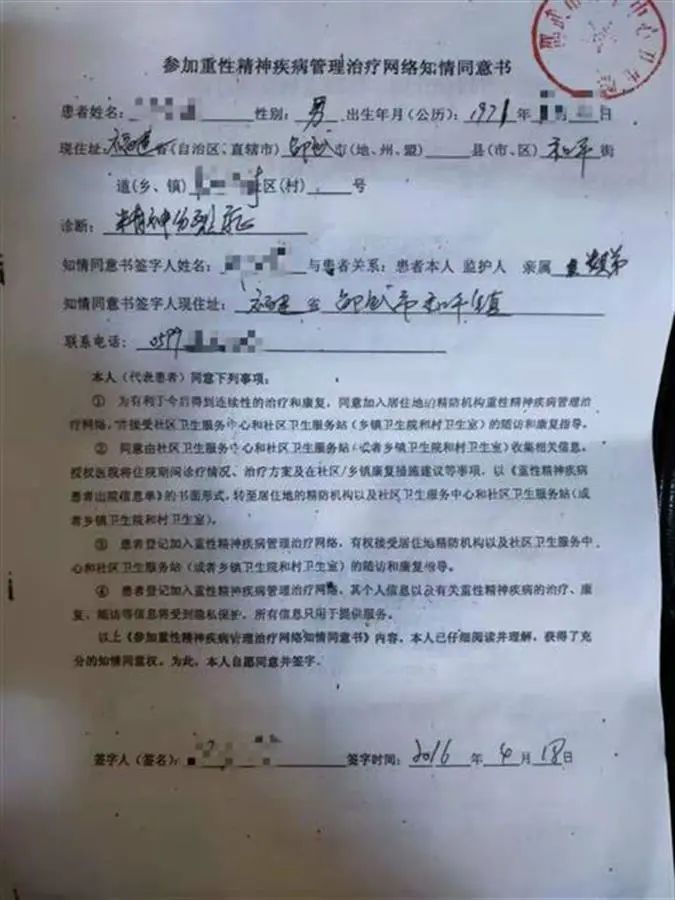 参加重性精神疾病管理治疗网络知情同意书
患者姓名: 性别: 男 出生年月(公历): 1971 年
现住址: 福建 省(自治区、直辖市) 邵武 市(地、州、盟) 县(市、区) 和平 街
道(乡、镇) 社区(村) 号
诊断: 精神分裂症
知情同意书签字人姓名: 与患者关系: 患者本人 监护人 亲属
知情同意书签字人现住址: 福建省邵武市和平镇
联系电话: 0599
本人(代表患者)同意下列事项:
① 为有利于今后得到连续性的治疗和康复,同意加入居住地的精防机构重性精神疾病管理治
疗网络,并接受社区卫生服务中心和社区卫生服务站(乡镇卫生院和村卫生室)的随访和康复指导。
② 同意由社区卫生服务中心和社区卫生服务站(或者乡镇卫生院和村卫生室)收集相关信息。
授权医院将住院期间诊疗情况、治疗方案及在社区/乡镇康复措施建议等事项,以《重性精神疾病
患者出院信息单》的书面形式,转至居住地的精防机构以及社区卫生服务中心和社区卫生服务站(或
者乡镇卫生院和村卫生室)。
③ 患者登记加入重性精神疾病管理治疗网络,有权接受居住地精防机构以及社区卫生服务中
心和社区卫生服务站(或者乡镇卫生院和村卫生室)的随访和康复指导。
④ 患者登记加入重性精神疾病管理治疗网络,其个人信息以及有关重性精神疾病的治疗、康
复、随访等信息将受到隐私保护,所有信息只用于提供服务。
以上《参加重性精神疾病管理治疗网络知情同意书》内容,本人已仔细阅读并理解,获得了充
分的知情同意权。为此,本人自愿同意并签字。
签字人(签名): 签字时间: 2016 年 4 月 18 日